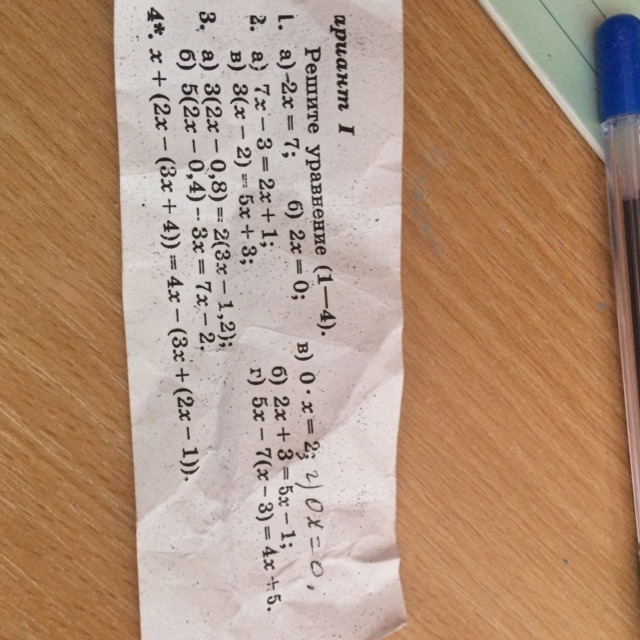 ариант I
Решите уравнение (1—4).
1. а) -2x = 7; б) 2x = 0; в) 0 · x = 2; г) 0x = 0,
2. а) 7x − 3 = 2x + 1; б) 2x + 3 = 5x − 1;
в) 3(x − 2) = 5x + 3; г) 5x − 7(x − 3) = 4x + 5.
3. а) 3(2x − 0,8) = 2(3x − 1,2);
б) 5(2x − 0,4) − 3x = 7x − 2.
4*. x + (2x − (3x + 4)) = 4x − (3x + (2x − 1)).